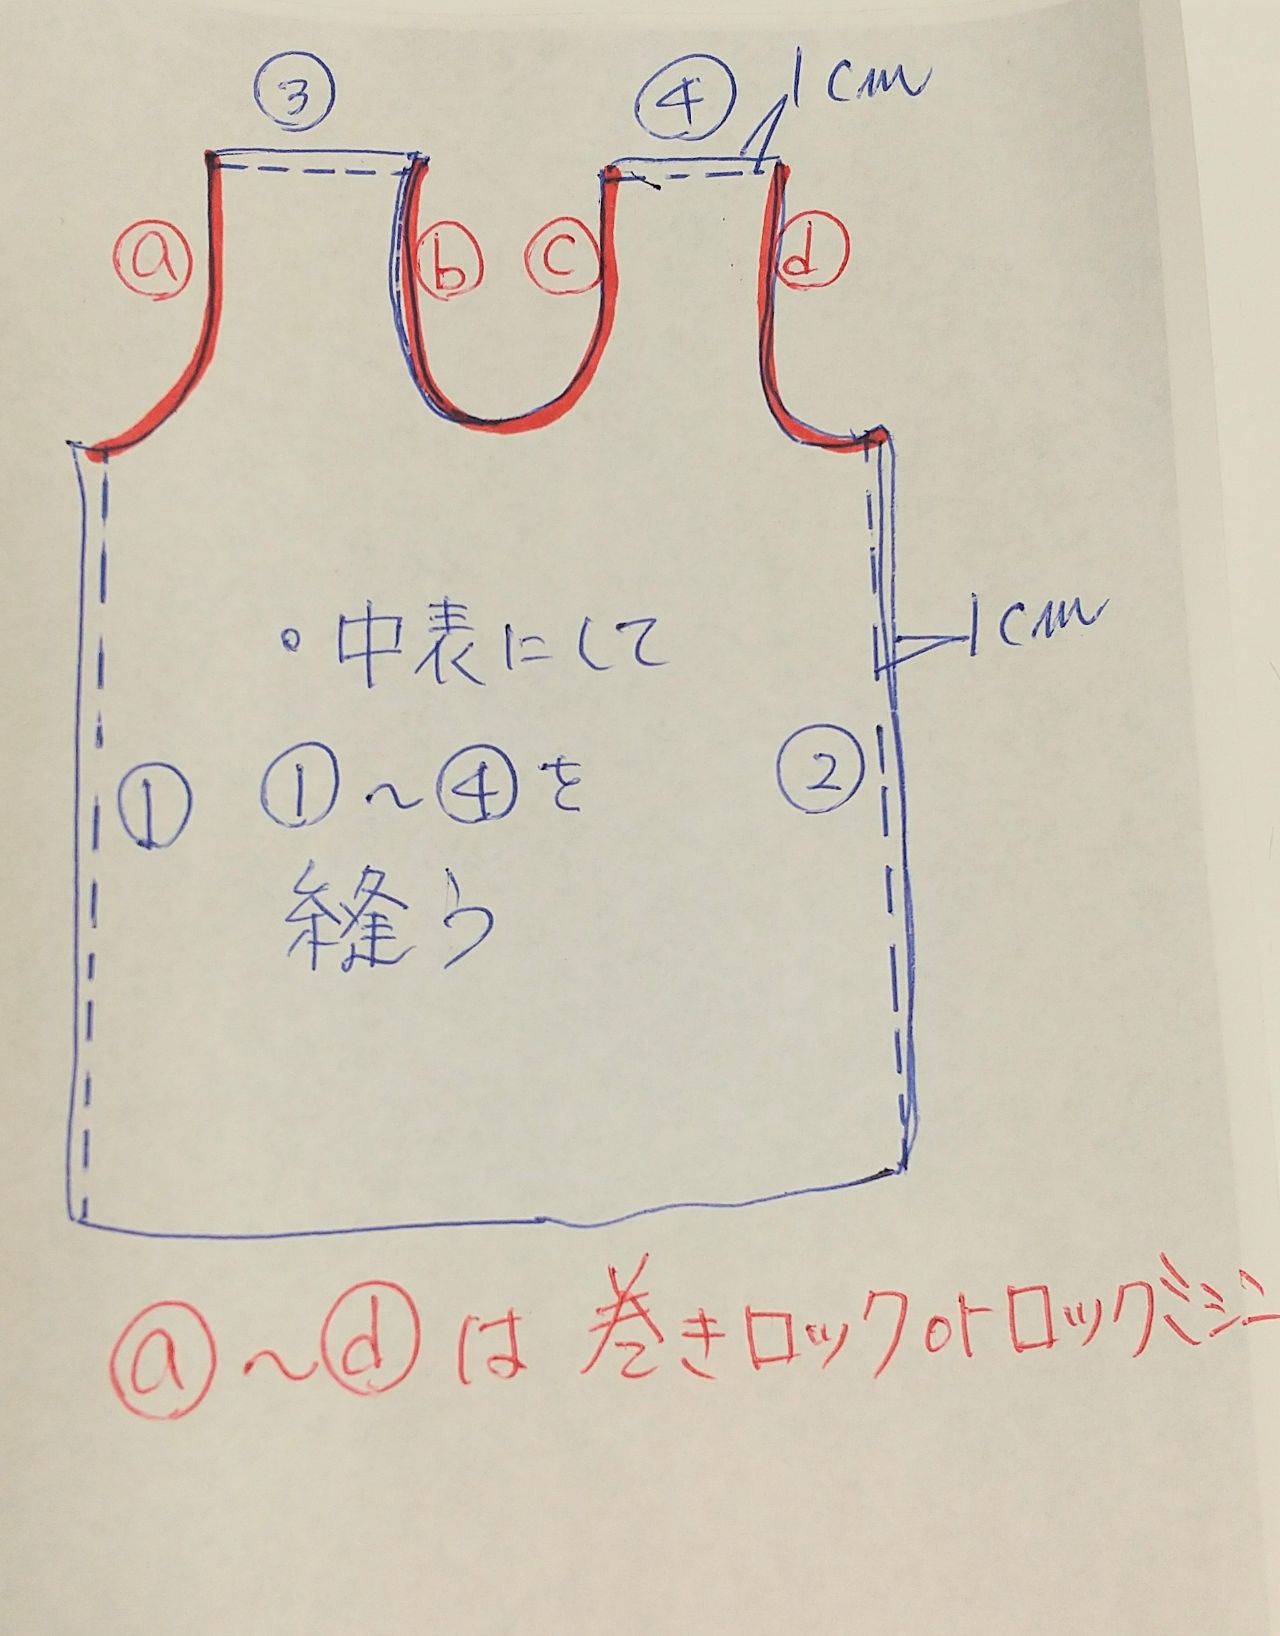 ③
④
1cm
ⓐ
ⓑ
ⓒ
ⓓ
・中表にして
1cm
①
①～④を
②
縫う
ⓐ～ⓓは巻きロックorロックミシ